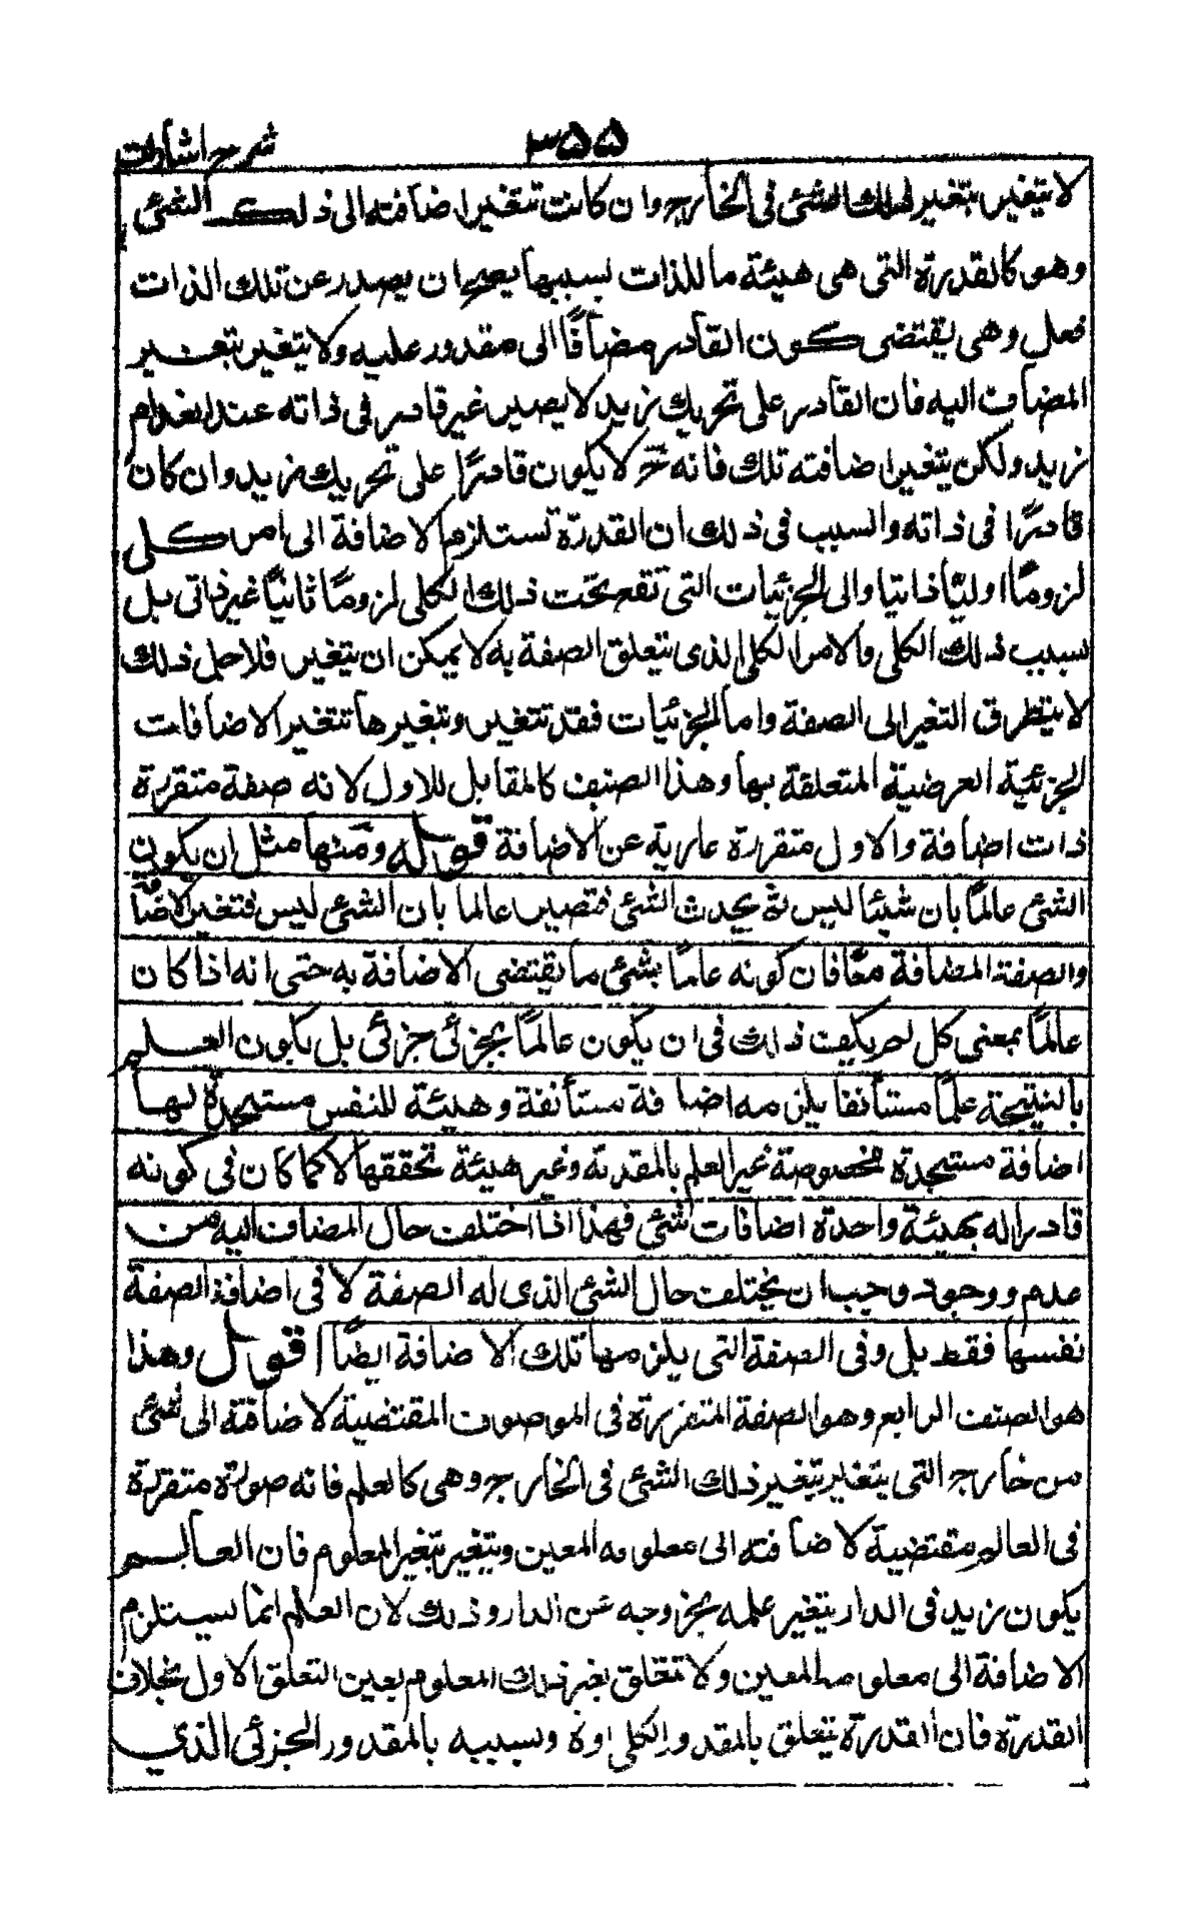 شرح اشارات
٣٥٥
لا يتغير بتغير ذلك الشئ فى الخارج وان كانت تتغير اضافته الى ذلك الشئ
وهو كالقدرة التى هى هيئة ما للذات بسببها يصح ان يصدر عن تلك الذات
فعل وهى يقتضى كون القادر مضافًا الى مقدور عليه ولا يتغير بتغير
المضاف اليه فان القادر على تحريك زيد لا يصير غير قادر فى ذاته عند انعدام
زيد ولكن يتغير اضافته تلك فانه ح لا يكون قادرًا على تحريك زيد وان كان
قادرًا فى ذاته والسبب فى ذلك ان القدرة تستلزم الاضافة الى امر كلى
لزومًا اوليًّا ذاتيا والى الجزئيات التى تقع تحت ذلك الكلى لزومًا ثانيًا غير ذاتى بل
بسبب ذلك الكلى والامر الكلى الذى تتعلق الصفة به لا يمكن ان يتغير فلاجل ذلك
لا يتطرق التغير الى الصفة واما الجزئيات فقد تتغير وبتغيرها تتغير الاضافات
الجزئية العرضية المتعلقة بها وهذا الصنف كالمقابل للاول لانه صفة متقررة
ذات اضافة والاول متقررة عارية عن الاضافة قوله ومنها مثل ان يكون
الشئ عالمًا بان شيئا ليس ثم يحدث الشئ فتصير عالما بان الشئ ليس فتغير الاضا
والصفة المضافة معًا فان كونه عالمًا بشئ ما يقتضى الاضافة به حتى انه اذا كان
عالمًا بمعنى كل لم يكف ذلك فى ان يكون عالمًا بجزئى جزئى بل يكون العلم
بالنتيجة علمًا مستأنفا يلزمه اضافة مستأنفة وهيئة للنفس مستجدة لها
اضافة مستجدة مخصوصة غير العلم بالمقدمة وغير هيئة تحققها لا كما كان فى كونه
قادرا له بهيئة واحدة اضافات شئ فهذا اذا اختلف حال المضاف اليه من
عدم ووجود وجب ان يختلف حال الشئ الذى له الصفة لا فى اضافة الصفة
نفسها فقط بل وفى الصفة التى يلزمها تلك الاضافة ايضًا اقول وهذا
هو الصنف الرابع وهو الصفة المتقررة فى الموصوف المقتضية لاضافته الى شئ
من خارج التى يتغير بتغير ذلك الشئ فى الخارج وهى كالعلم فانه صورة متقررة
فى العالم مقتضية لاضافته الى معلومه المعين ويتغير بتغير المعلوم فان العالم
بكون زيد فى الدار يتغير علمه بخروجه عن الدار وذلك لان العلم انما يستلزم
الاضافة الى معلومه المعين ولا تتعلق بغير ذلك المعلوم بعين التعلق الاول بخلاف
القدرة فان القدرة تتعلق بالمقدور الكلى اولا وبسببه بالمقدور الجزئى الذى